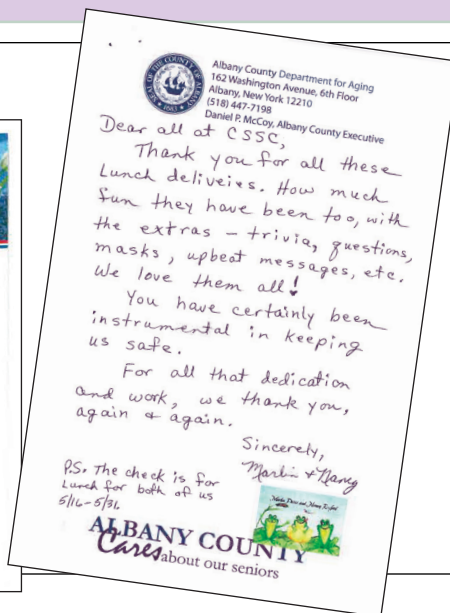 SEAL OF THE COUNTY OF ALBANY
1683
Albany County Department for Aging
162 Washington Avenue, 6th Floor
Albany, New York 12210
(518) 447-7198
Daniel P. McCoy, Albany County Executive
Dear all at CSSC,
Thank you for all these
Lunch deliveies. How much
fun they have been too, with
the extras – trivia, questions,
masks, upbeat messages, etc.
We love them all!
You have certainly been
instrumental in keeping
us safe.
For all that dedication
and work, we thank you,
again & again.
Sincerely,
Marlin & Nancy
P.S. The check is for
Lunch for both of us
5/16-5/31
ALBANY COUNTY
Cares about our seniors